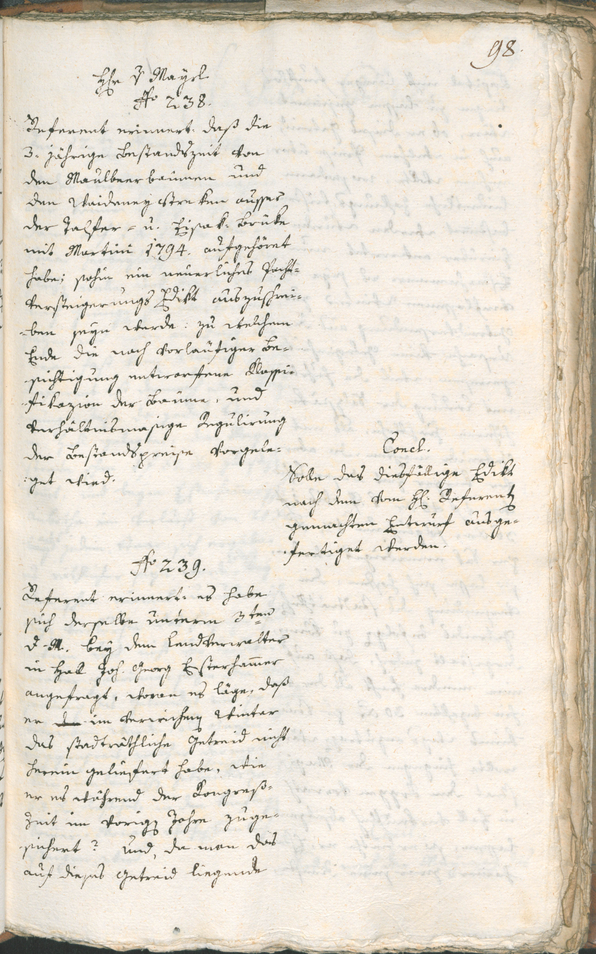 98.
Hr. v Mayrl
No 238.
Referent erinnert: daß die
3. jährige Bestandszeit von
den Maulbeerbaumen und
den Waideney strecken ausser
der Talfer- u. Eisak. Brüke
mit Martini 1794. aufgehöret
habe; sohin ein neuerliches Pacht-
Versteigerungs Edikt auszuschrei-
ben seyn werde: zu welchem
Ende die nach vorläufiger Be-
sichtigung entworffene Klassi-
fikazion der Bäume, und
verhältnismäsige Regulirung
der Bestandspreise vorgele-
get wird.
Concl.
Solle das diesfällige Edikt
nach dem vom H. Referenten
gemachten Entwurf ausge-
fertiget werden.
No 239.
Referent erinnert: es habe
sich derselbe unterm 3ten
d. M. bey dem Landverwalter
in Hall Joh. Georg Esterhamer
angefragt, woran es läge, daß
er im verwichenen Winter
das stadträthliche Getreid nicht
herein geliefert habe, wie
er es während der Kongreß-
zeit im vorigen Jahre zuge-
sichert? Und, da man das
auf dieses Getreid liegende